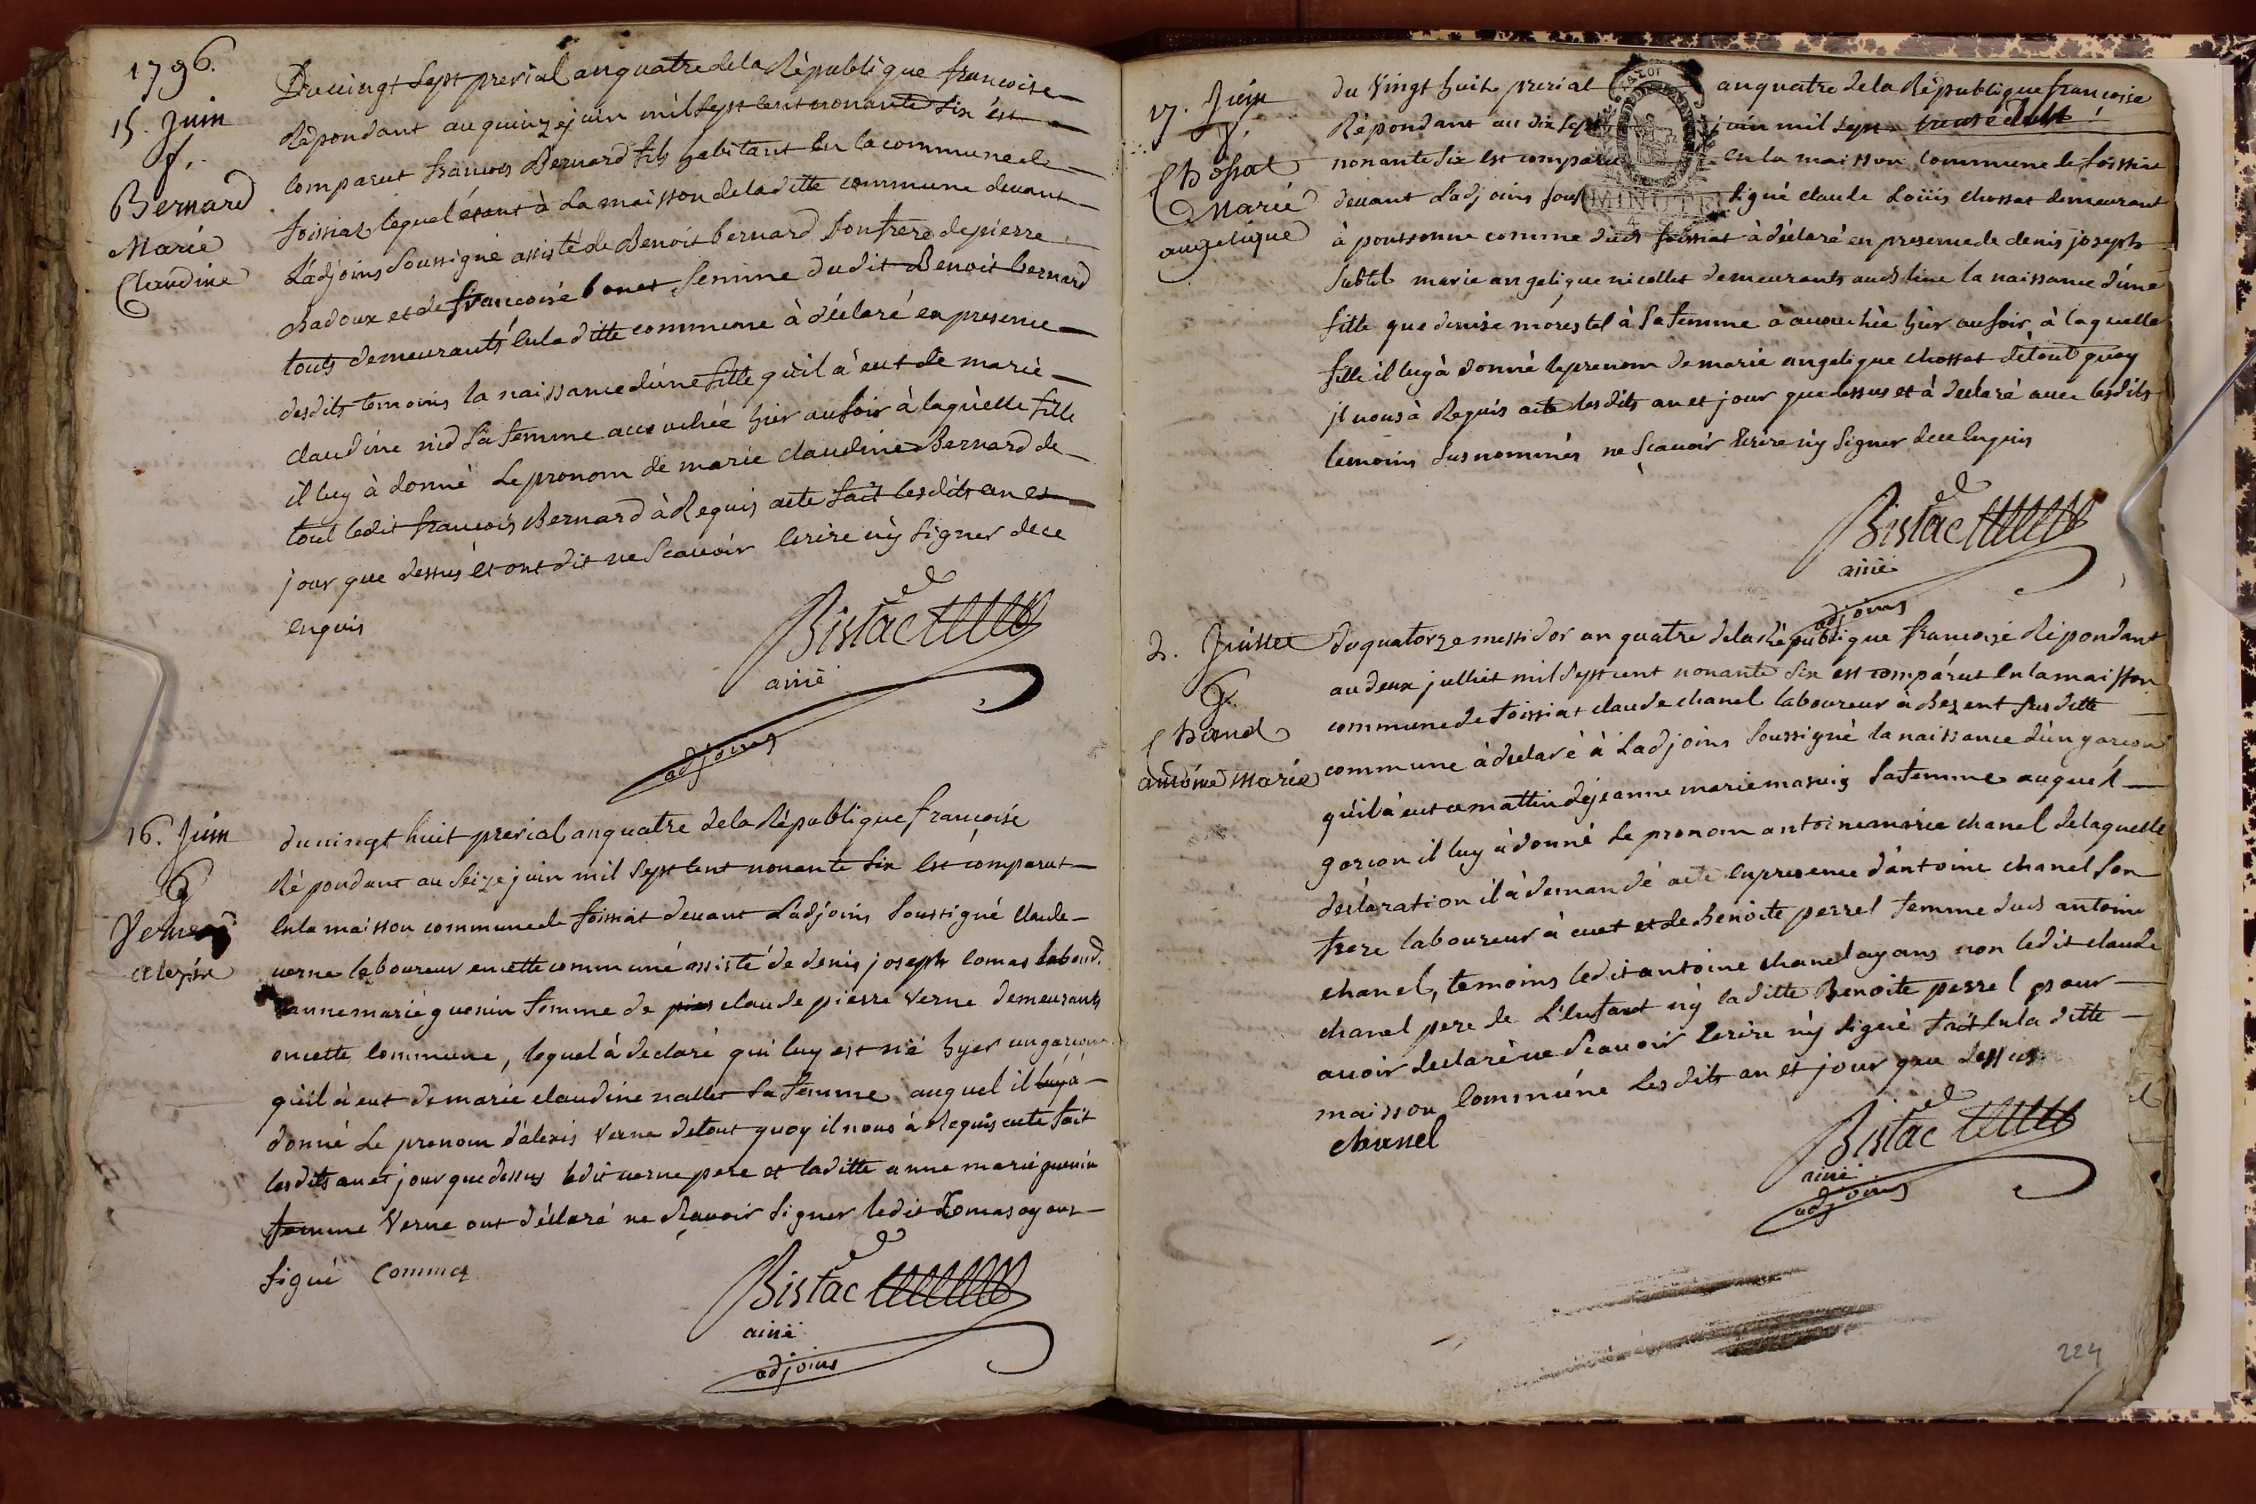 1796.
15. Juin
f.
Bernard
Marie
Claudine
Du vingt sept prerial an quatre de la République francoise
Répondant au quinze juin mil sept cent nonante six est
comparut francois Bernard fils habitant en la commune de
foissiat lequel étant à la maison de la ditte commune devant
L'adjoins soussigné assisté de Benoit bernard son frere de pierre
Badoux et de francoise bonet femme dudit Benoit bernard
touts demeurants en la ditte commune à déclaré en presence
desdits temoins la naissance d'une fille qu'il à eut de marie
claudine nid sa femme accouchée hier au soir à laquelle fille
il luy à donné Le pronom de marie claudine Bernard de
tout ledit francois Bernard à Requis acte fait lesdits an et
jour que dessus et ont dit ne scavoir Ecrire ny signer de ce
enquis
Bistac
ainé
adjoins
16. Juin
G
Verne
alexis
du vingt huit prerial an quatre de la République francoise
Répondant au seize juin mil sept cent nonante six est comparut
en la maison commune de foissiat devant L'adjoins soussigné claude
verne laboureur en cette commune assisté de denis joseph comas
anne marie guenin femme de claude pierre verne demeurants
en cette commune, lequel à declaré qui luy est né hyer un garcon
qu'il à eut de marie claudine nallet sa femme auquel il luy à
donné Le prenom d'alexis verne de tout quoy il nous à Requis acte fait
lesdits an et jour que dessus ledit verne pere et laditte anne marie guenin
femme Verne ont déclaré ne scavoir signer ledit Comas ayant
signé Commas
Bistac
ainé
adjoins
17. Juin
f.
Chossat
Marie
angelique
du vingt huit prerial an quatre de la République francoise
Répondant au dix sept juin mil sept
nonante six est comparu en la maison commune de foissiat
devant L'adjoins sous signé claude Loüis chossat demeurant
MINUTE
à poursonne comme dud foissiat à déclaré en presence de denis joseph
marie angelique nicollet demeurants aud lieu la naissance d'une
fille que denise morestel à sa femme a accouchée hier au soir à laquelle
fille il luy à donné le prenom de marie angelique chossat de tout quoy
il nous à Requis acte lesdits an et jour que dessus et à declaré avec lesdits
temoins susnommés ne scavoir Ecrire ny signer de ce enquis
Bistac
ainé
adjoins
2. Juillet
G.
Chanel
antoine Marie
du quatorze messidor an quatre de la République francoise Répondant
au deux julliet mil sept cent nonante six est comparut en la maisson
commune de foissiat claude chanel laboureur à Bezent susditte
commune à declaré à L'adjoins soussigné la naissance d'un garcon
qu'il à eut ce mattin de jeanne marie masuis sa femme auquel
garcon il luy à donné Le pronom antoine marie chanel de laquelle
déclaration il à demandé acte en presence d'antoine chanel son
frere laboureur à cuet et de Benoite perrel femme dud antoine
chanel, temoins ledit antoine chanel ayans non ledit claude
chanel pere de L'enfant ny laditte Benoite perrel pour
avoir declaré ne scavoir Ecrire ny signé fait en la ditte
maisson commune Lesdits an et jour que dessus
chanel
Bistac
ainé
adjoins
224